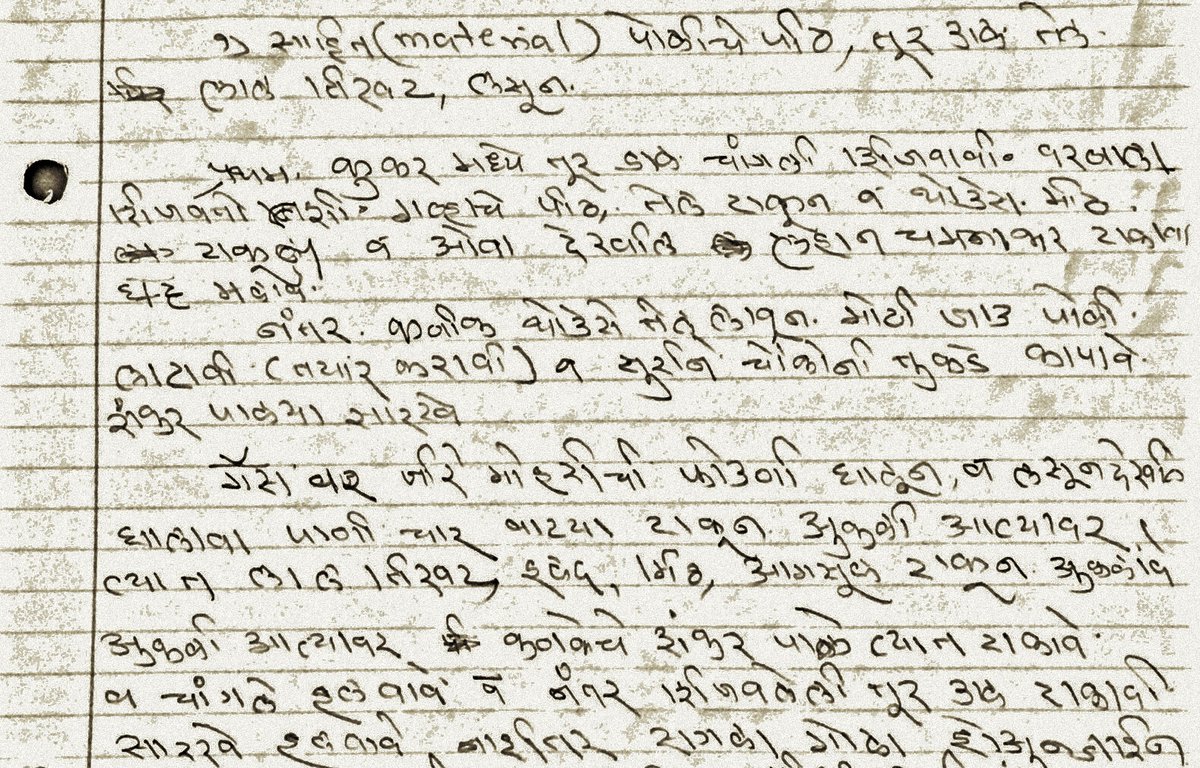 १) साहित (material) पोळीचे पीठ, तूर डाळ तेल.
लाल तिखट, लसून.
प्रथम. कुकर मध्ये तूर डाळ चांगली शिजवावी.
शिजवतो गव्हाचे पीठ, तेल टाकून व थोडेस. मीठ.
टाकून व ओवा देखील लहान चमचाभर टाकावा
घट्ट मळावे.
नंतर. कणीक थोडेसे तेल लावून. मोठी जाड पोळी.
लाटावी (तयार करावी) व सुरीने चौकोनी तुकडे कापावे.
शंकर पाळ्या सारखे
गॅस वर जीरे मोहरीची फोडणी घालून, व लसून देखील
घालावा पाणी चार वाट्या टाकून. उकळी आल्यावर
त्यात लाल तिखट, हळद, मिठ, आमसूल टाकून उकळावे
उकळी आल्यावर कणकेचे शंकर पाळे त्यात टाकावे.
व चांगले हलवावे व नंतर शिजवलेली तूर डाळ टाकावी
सारखे हलवावे, गोळा